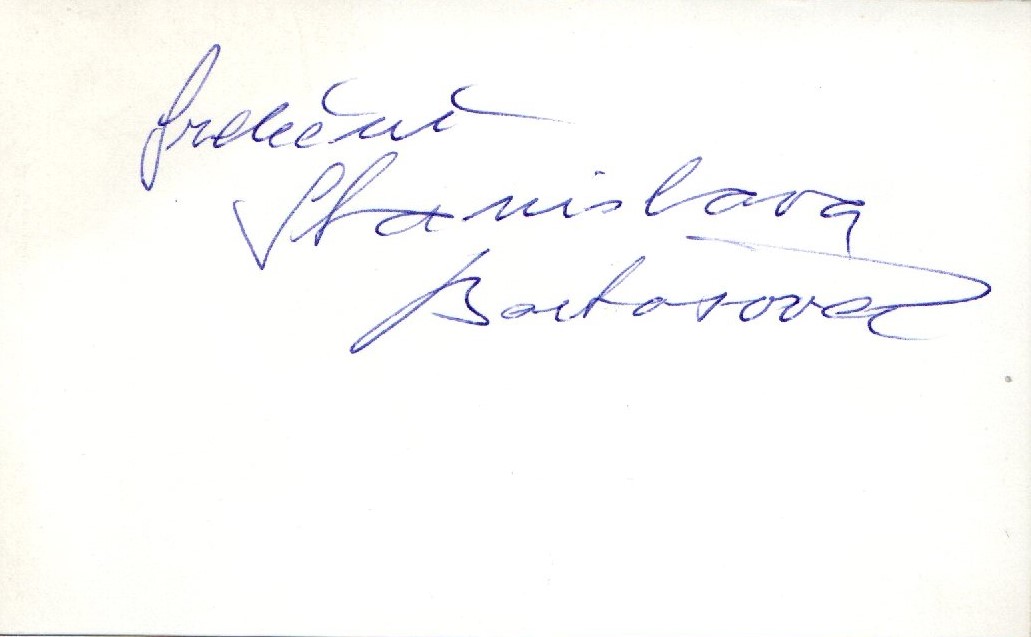 Srdečně
Stanislava
Bartošová